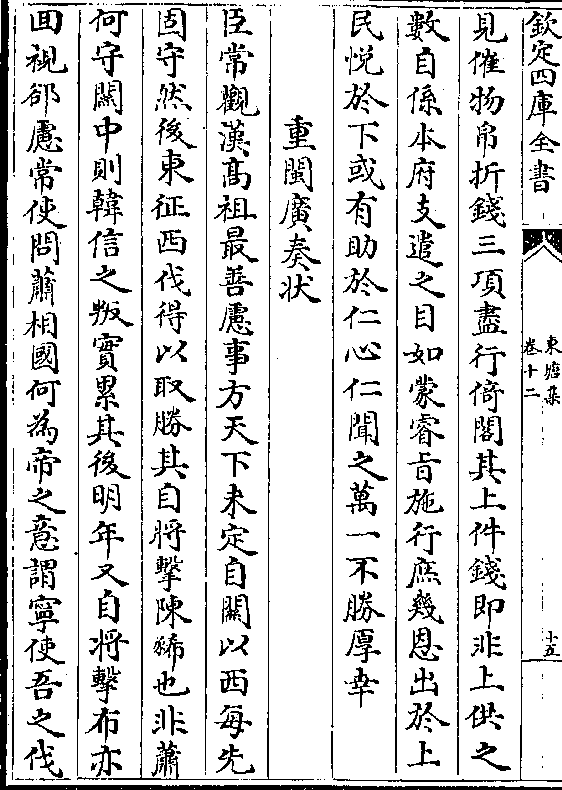 欽定四庫全書
東塘集
卷十二
十五
見催物帛折錢三項盡行倚閣其上件錢即非上供之
數自係本府支遣之目如蒙睿旨施行庶幾恩出於上
民悅於下或有助於仁心仁聞之萬一不勝厚幸
重閩廣奏狀
臣常觀漢髙祖最善慮事方天下未定自關以西每先
固守然後東征西伐得以取勝其自將擊陳豨也非蕭
何守關中則韓信之叛實累其後明年又自將擊布亦
回視卻慮常使問蕭相國何為帝之意謂寧使吾之伐